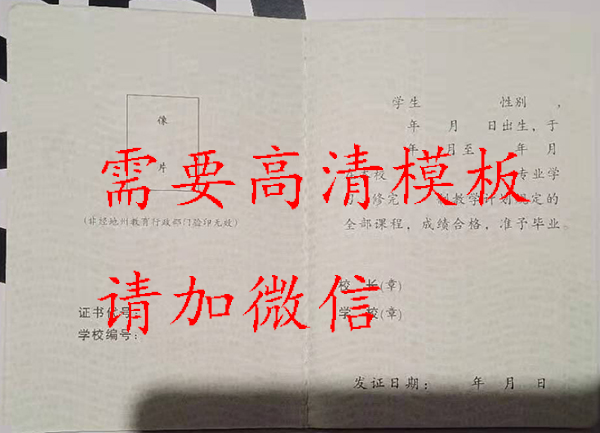 像
片
(非经地州教育行政部门验印无效)
证书代号:
学校编号:
学生 性别 ,
年 月 日出生,于
年 月至 年 月
校 专业学
修完 教学计划规定的
全部课程,成绩合格,准予毕业
校 长(章)
学 校(章)
发证日期: 年 月 日
需要高清模板
请加微信